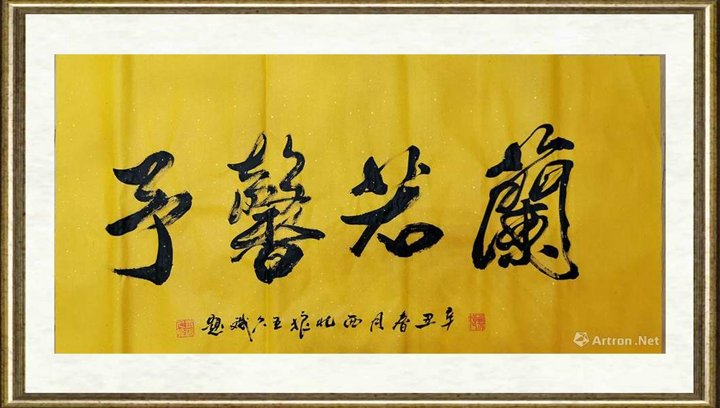 蘭若馨予
辛丑春月西北狼王斌题
Artron.Net